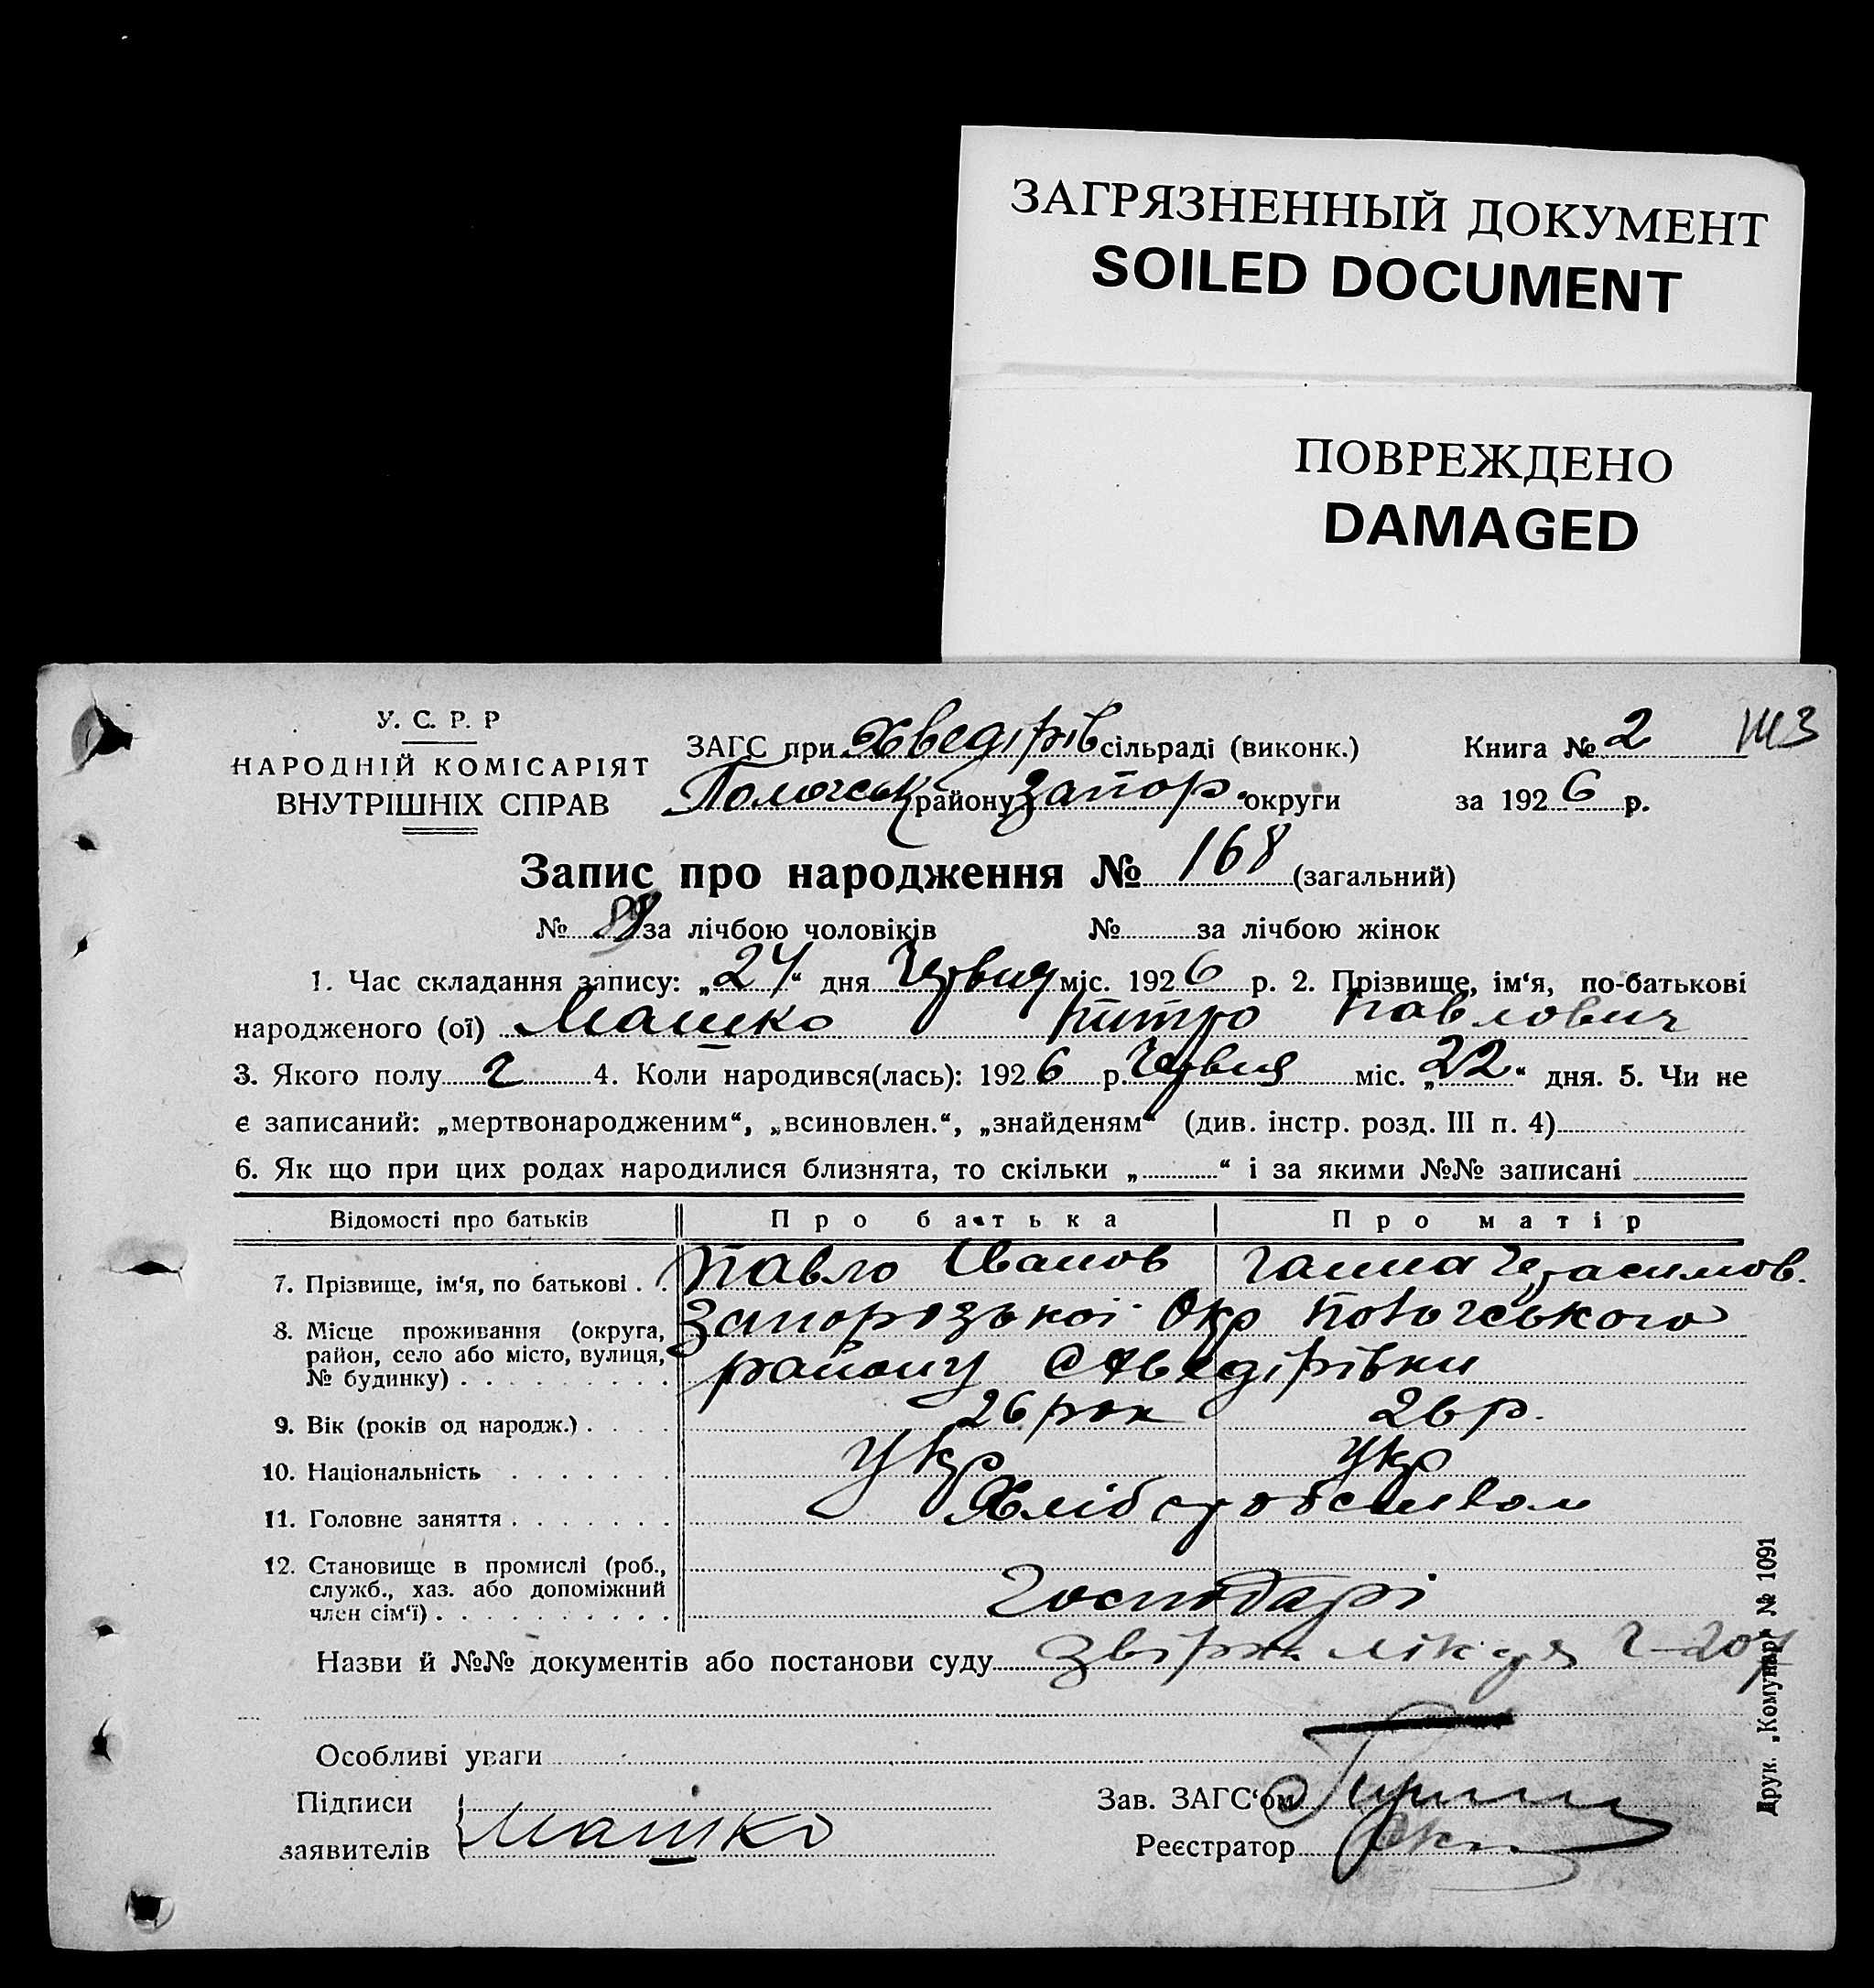 ЗАГРЯЗНЕННЫЙ ДОКУМЕНТ
SOILED DOCUMENT
ПОВРЕЖДЕНО
DAMAGED
У. С. Р. Р
НАРОДНІЙ КОМІСАРІЯТ
ВНУТРІШНІХ СПРАВ
ЗАГС при Хведірів сільраді (виконк.) Книга № 2
Пологськ району Запор. округи за 1926 р.
Запис про народження № 168 (загальний)
№ за лічбою чоловіків № за лічбою жінок
1. Час складання запису: „24“ дня Червня міс. 1926 р. 2. Прізвище, ім‘я, по-батькові
народженого (ої) Машко Питро Павлович
3. Якого полу ч 4. Коли народився(лась): 1926 р. Червня міс. „22“ дня. 5. Чи не
є записаний: „мертвонародженим“, „всиновлен.“, „знайденям“ (див. інстр. розд. III п. 4)
6. Як що при цих родах народилися близнята, то скільки „ “ і за якими №№ записані
Відомості про батьків Про батька Про матір
7. Прізвище, ім‘я, по батькові . . Павло Іванов Ганна Герасимов.
8. Місце проживання (округа, район, село або місто, вулиця, № будинку) . Запорозької Окр Пологського
району с Хведірівки
9. Вік (років од народж.) . 26 рок 26 р.
10. Національність . Укр Укр
11. Головне заняття . Хліборобством
12. Становище в промислі (роб., служб., хаз. або допоміжний член сім‘ї) . Господарі
Назви й №№ документів або постанови суду
Особливі уваги
Підписи
заявителів Машко
Зав. ЗАГС‘ом
Реєстратор
Друк. „Комунар“ № 1091